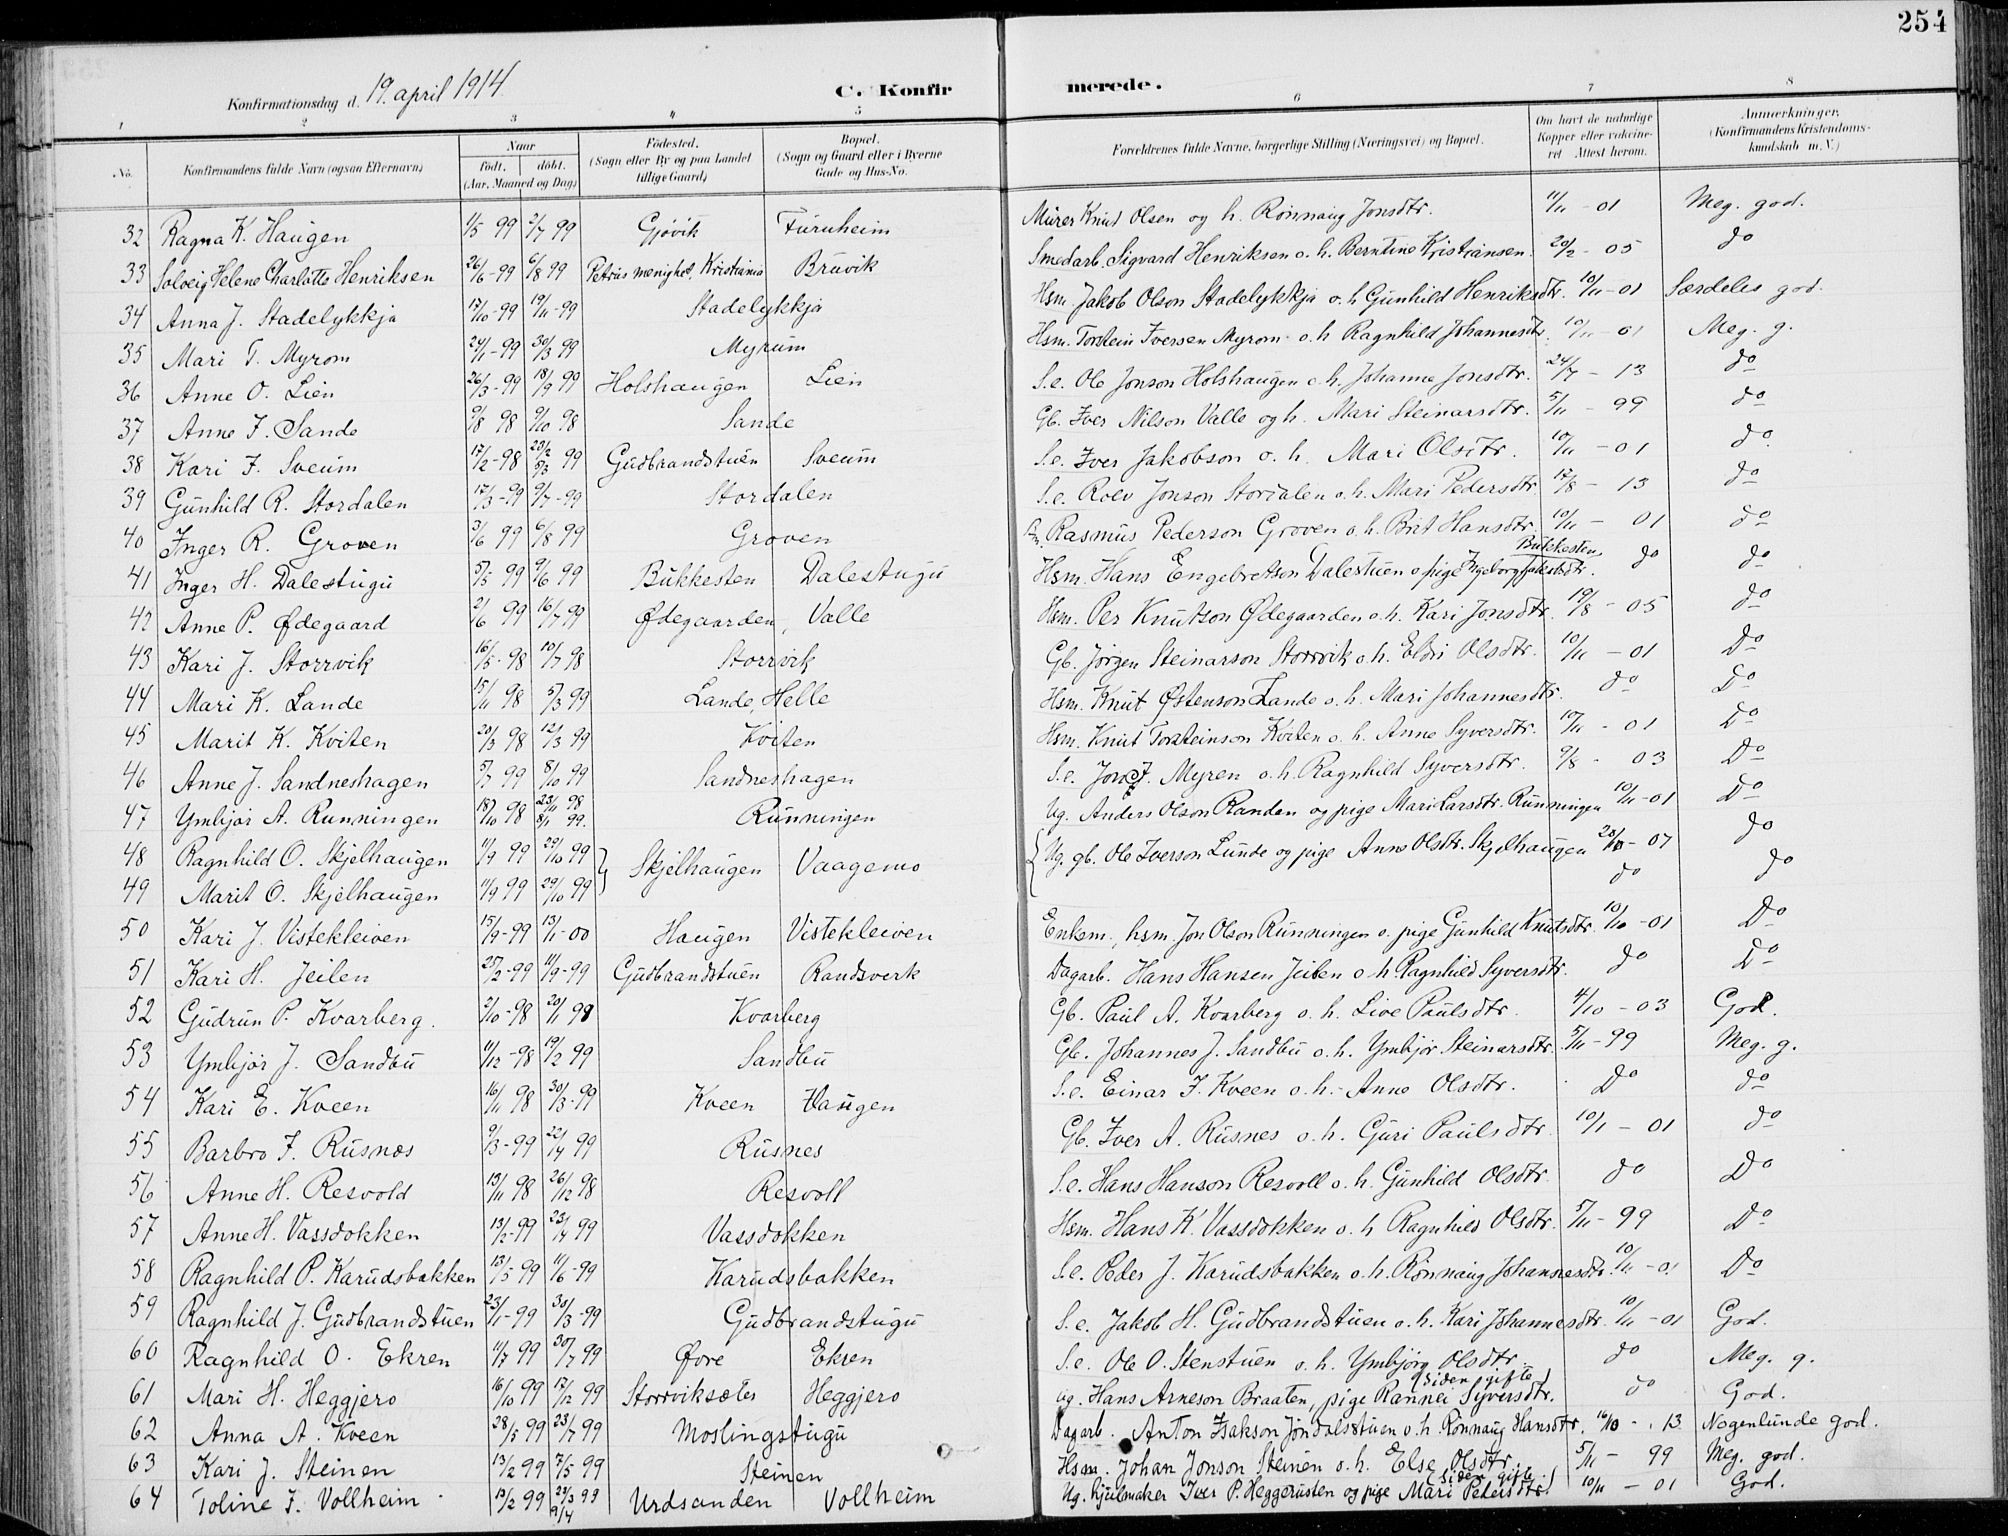 254
Konfirmationsdag d. 19. april 1914
C. Konfirmerede.
1 2 3 4 5 6 7 8
No. Konfirmandens fulde Navn (ogsaa Efternavn) Naar födt. döbt. (Aar, Maaned og Dag) Födested. (Sogn eller By og paa Landet tillige Gaard) Bopæl. (Sogn og Gaard eller i Byerne Gade og Hus-No. Forældrenes fulde Navne, borgerlige Stilling (Næringsvei) og Bopæl. Om havt de naturlige Kopper eller vakcineret Attest herom. Anmærkninger. (Konfirmandens Kristendomskundskab m. V.)
32 Ragna K. Haugen 1/5 99 2/7 99 Gjøvik Furuheim Murer Knud Olsen og h. Rönnaug Jonsdtr. 11/11 - 01 Meg. god.
33 Solveig Helene Charlotte Henriksen 26/6-99 6/8 99 Petrus menighet, Kristiania Bruvik Smedarb. Sigvard Henriksen o. h. Berntine Kristiansen. 20/2 - 05 do
34 Anna J. Stadelykkja 17/10-99 19/11-99 Stadelykkja Hsm. Jakob Olson Stadelykkja o. h Gunhild Henriksdtr. 10/11-01 Særdeles god.
35 Mari T. Myrom 24/1-99 30/3 99 Myrum Hsm. Torstein Iversen Myrom o. h Ragnhild Johannesdtr. 10/11-01 Meg. g.
36 Anne O. Lien 26/3-99 18/9 99 Holshaugen Lien S.e. Ole Jonson Holshaugen o. h. Johanne Jonsdtr. 24/7 - 13 do
37 Anne I. Sande 9/8 98 9/10 98 Sande Gb. Iver Nilson Valle og h. Mari Steinarsdtr. 5/11 - 99 do
38 Kari I. Sveum 17/2-98 23/2 5/3 99 Gudbrandstuen Sveum S.e. Iver Jakobson o. h. Mari Olsdtr. 10/11 - 01 do
39 Gunhild R. Stordalen 17/3-99 9/7-99 Stordalen S.e. Rolv Jonson Stordalen o. h. Mari Pedersdtr. 12/8 - 13 do
40 Inger R. Groven 3/6 99 6/8 99 Groven Rasmus Pederson Groven o. h. Brit Hansdtr. 10/11 - 01 do
41 Inger H. Dalestugu 5/5 99 9/6 99 Bukkesten Dalestugu Hsm. Hans Engebretson Dalestuen o pige Ingeborg Jakobsdtr. Bukkesten do do
42 Anne P. Ødegaard 2/6 99 16/7 99 Ødegaarden, Valle Hsm. Per Knutson Ødegaarden o. h. Kari Jonsdtr. 19/8 - 05 do
43 Kari J. Storrvik 16/5-98 10/7 98 Storrvik Gb. Jörgen Steinarson Storrvik o. h. Eldri Olsdtr. 10/11 - 01 Do
44 Mari K. Lande 15/11 98 5/3 99 Lande, Helle Hsm. Knut Østenson Lande o. h. Mari Johannesdtr. do Do
45 Marit K. Kviten 20/3 98 12/3 99 Kviten Hsm. Knut Torsteinson Kviten o. h. Anne Syversdtr. 10/11 - 01 Do
46 Anne J. Sandneshagen 5/7 99 8/10 99 Sandneshagen S.e. Jon J. Myren o. h. Ragnhild Syversdtr. 9/8 - 03 Do
47 Ymbjør A. Runningen 18/10 98 23/11 98 8/11 99. Runningen Ug. Anders Olson Randen og pige Mari Larsdtr. Runningen 10/11-01 Do
48 Ragnhild O. Skjelhaugen 11/9 99 29/10 99 Skjelhaugen Vaagemo Ug. gb. Ole Iverson Lunde og pige Anne Olsdtr. Skjelhaugen 20/10-07 do
49 Marit O. Skjelhaugen 11/9 99 29/10 99 do do
50 Kari J. Vistekleiven 15/9-99 13/1-00 Haugen Vistekleiven Enkem., hsm. Jon Olson Runningen o. pige Gunhild Knutsdtr. 10/10-01 Do
51 Kari H. Jeilen 25/2-99 11/9-99 Gudbrandstuen Randsverk Dagarb. Hans Hansen Jeilen o. h Ragnhild Syversdtr. do Do
52 Gudrun P. Kvarberg 2/10-98 20/11 98 Kvarberg Gb. Paul A. Kvarberg o. h. Live Paulsdtr. 4/10 - 03 God.
53 Ymbjør J. Sandbu 11/12-98 19/2 99 Sandbu Gb. Johannes J. Sandbu o. h. Ymbjør Steinarsdtr. 5/11-99 Meg. g.
54 Kari E. Kveen 16/11 98 30/3-99 Kveen Haugen S.e. Einar I. Kveen o. h. Anne Olsdtr. Do do
55 Barbro I. Rusnes 9/3-99 22/4 99 Rusnes Gb. Iver A. Rusnes o. h. Guri Paulsdtr. 10/1 - 01 do
56 Anne H. Resvold 13/11 98 26/12 98 Resvoll S.e. Hans Hanson Resvoll o. h. Gunhild Olsdtr. do Do
57 Anne H. Vassdokken 13/2-99 23/4 99 Vassdokken Hsm. Hans K. Vassdokken o. h Ragnhild Olsdtr. 5/11-99 Do
58 Ragnhild P. Karudsbakken 13/5 99 11/6-99 Karudsbakken S.e. Peder J. Karudsbakken o. h. Rönnaug Johannesdtr. 10/11-01 Do
59 Ragnhild J. Gudbrandstuen 23/1-99 30/3-99 Gudbrandstugu S.e. Jakob H. Gudbrandstuen o. h. Kari Johannesdtr. 10/11-01 God.
60 Ragnhild O. Ekren 11/7 99 30/7 99 Øvre Ekren S.e. Ole O. Stenstuen o. h. Ymbjörg Olsdtr. do Meg. g.
61 Mari H. Heggjero 16/10 99 17/12 99 Storrviksæter Heggjero ug. Hans Arneson Braaten, pige Rannei Syversdtr. (siden gifte) do God.
62 Anna A. Kveen 28/5 99 23/7 99 Moslingstugu Dagarb. Anton Isakson Jöndalsstuen o. h. Rönnaug Hansdtr. 16/10 - 13 Nogenlunde god.
63 Kari J. Steinen 13/2 99 7/5 99 Steinen Hsm. Johan Jonson Steinen o. h. Else Olsdtr. 5/11 - 99 Meg. god.
64 Toline I. Vollheim 13/2 99 23/3 99 9/4 Urdsanden Vollheim Ug. hjulmaker Iver P. Heggerusten og pige Mari Pedersdtr. (siden gifte) 10/11 - 01 God.